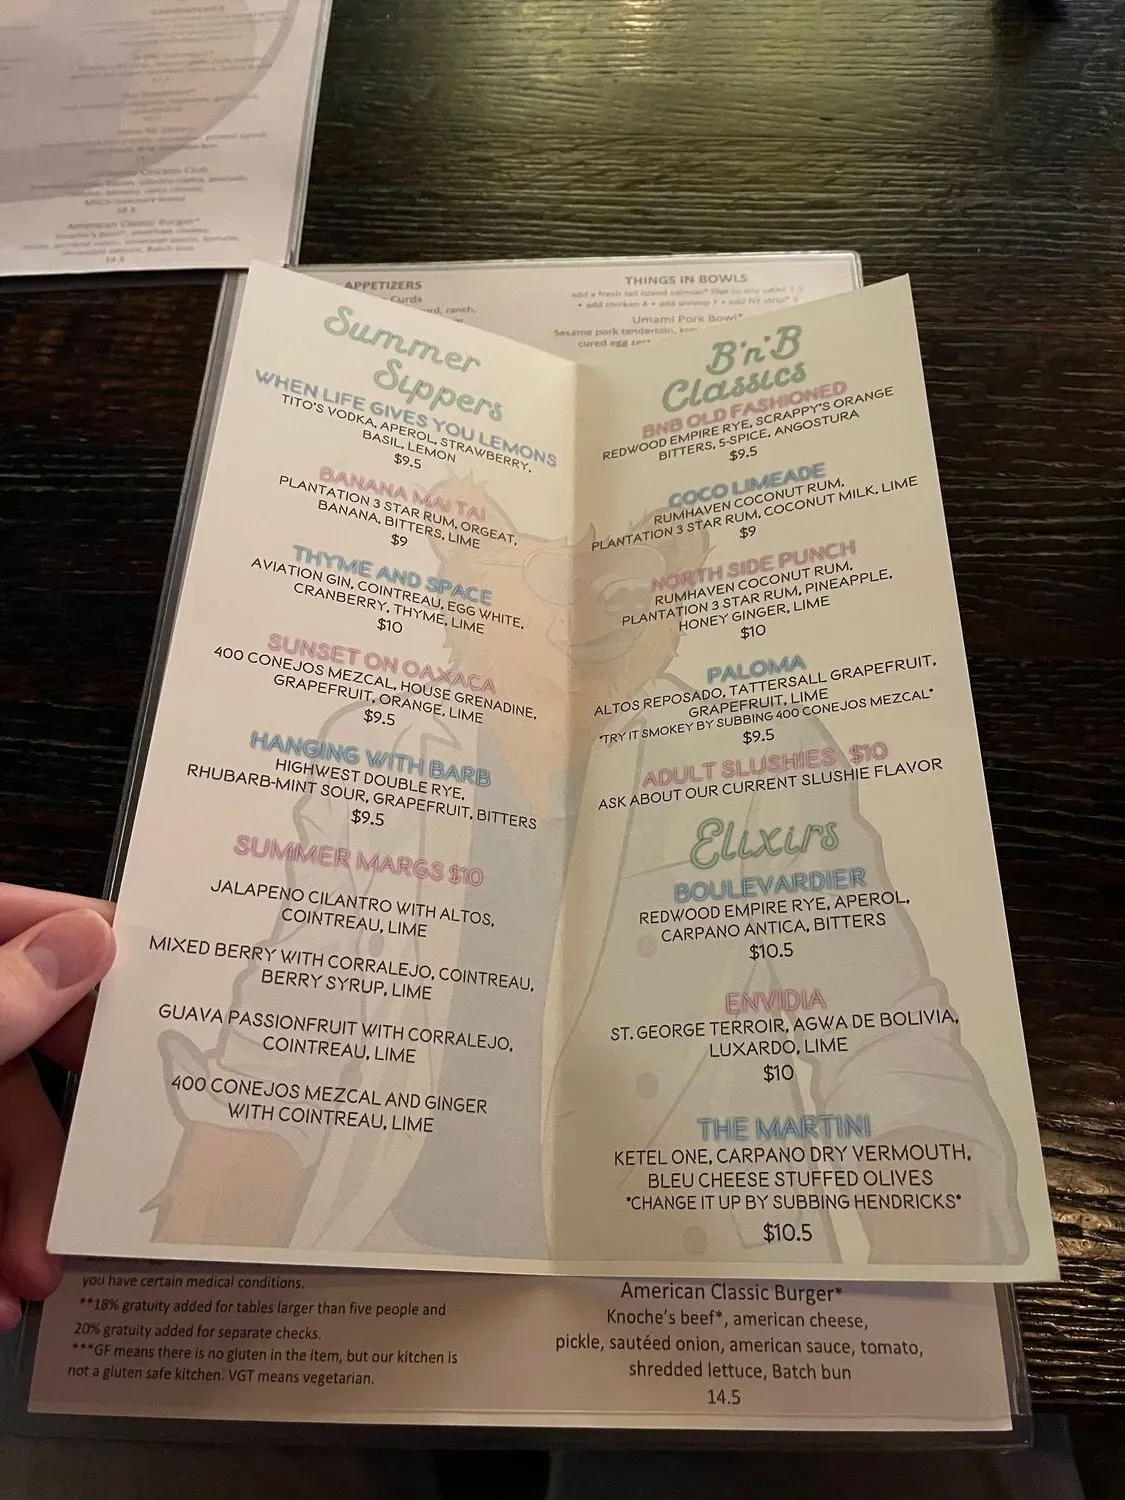 Chicken Club
American Classic Burger*
APPETIZERS
Curds
ranch,
THINGS IN BOWLS
add a fresh fall island salmon* filet to any salad
• add chicken 4 • add shrimp 7 • add NY strip* 9
Umami Pork Bowl*
Sesame pork tenderloin,
cured egg
Summer
Sippers
WHEN LIFE GIVES YOU LEMONS
TITO'S VODKA, APEROL, STRAWBERRY,
BASIL, LEMON
$9.5
BANANA MAI TAI
PLANTATION 3 STAR RUM, ORGEAT,
BANANA, BITTERS, LIME
$9
THYME AND SPACE
AVIATION GIN, COINTREAU, EGG WHITE,
CRANBERRY, THYME, LIME
$10
SUNSET ON OAXACA
400 CONEJOS MEZCAL, HOUSE GRENADINE,
GRAPEFRUIT, ORANGE, LIME
$9.5
HANGING WITH BARB
HIGHWEST DOUBLE RYE,
RHUBARB-MINT SOUR, GRAPEFRUIT, BITTERS
$9.5
SUMMER MARGS $10
JALAPENO CILANTRO WITH ALTOS,
COINTREAU, LIME
MIXED BERRY WITH CORRALEJO, COINTREAU,
BERRY SYRUP, LIME
GUAVA PASSIONFRUIT WITH CORRALEJO,
COINTREAU, LIME
400 CONEJOS MEZCAL AND GINGER
WITH COINTREAU, LIME
B'n'B
Classics
BNB OLD FASHIONED
REDWOOD EMPIRE RYE, SCRAPPY'S ORANGE
BITTERS, 5-SPICE, ANGOSTURA
$9.5
COCO LIMEADE
RUMHAVEN COCONUT RUM,
PLANTATION 3 STAR RUM, COCONUT MILK, LIME
$9
NORTH SIDE PUNCH
RUMHAVEN COCONUT RUM,
PLANTATION 3 STAR RUM, PINEAPPLE,
HONEY GINGER, LIME
$10
PALOMA
ALTOS REPOSADO, TATTERSALL GRAPEFRUIT,
GRAPEFRUIT, LIME
*TRY IT SMOKEY BY SUBBING 400 CONEJOS MEZCAL*
$9.5
ADULT SLUSHIES $10
ASK ABOUT OUR CURRENT SLUSHIE FLAVOR
Elixirs
BOULEVARDIER
REDWOOD EMPIRE RYE, APEROL,
CARPANO ANTICA, BITTERS
$10.5
ENVIDIA
ST. GEORGE TERROIR, AGWA DE BOLIVIA,
LUXARDO, LIME
$10
THE MARTINI
KETEL ONE, CARPANO DRY VERMOUTH,
BLEU CHEESE STUFFED OLIVES
*CHANGE IT UP BY SUBBING HENDRICKS*
$10.5
you have certain medical conditions.
**18% gratuity added for tables larger than five people and
20% gratuity added for separate checks.
***GF means there is no gluten in the item, but our kitchen is
not a gluten safe kitchen. VGT means vegetarian.
American Classic Burger*
Knoche's beef*, american cheese,
pickle, sautéed onion, american sauce, tomato,
shredded lettuce, Batch bun
14.5